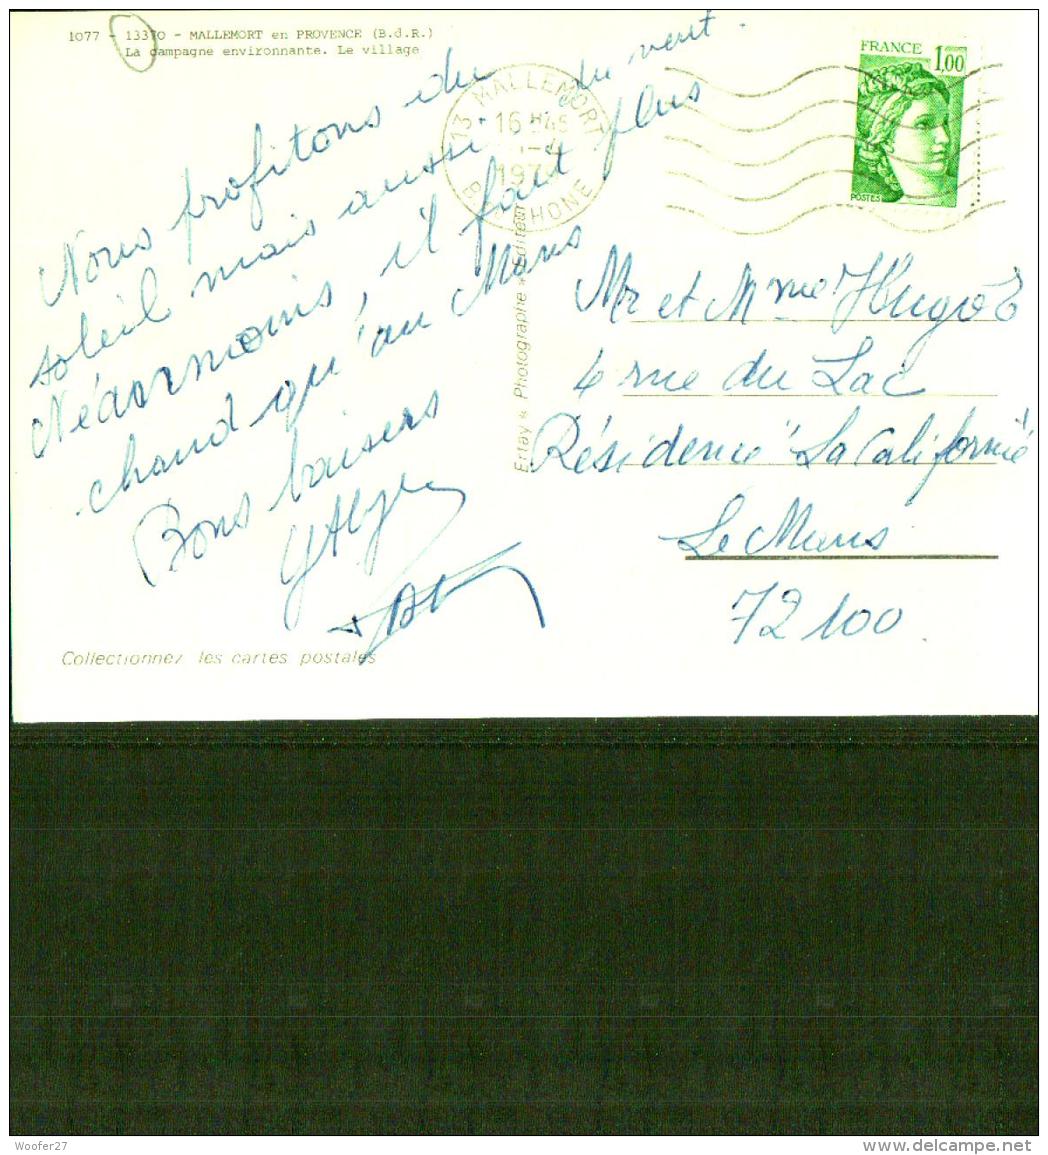 1077 - 13370 - MALLEMORT en PROVENCE (B.d.R.)
La campagne environnante. Le village
Nous profitons du
soleil mais aussi du vent.
Néanmoins, il fait plus
chaud qu'au Mans
Bons baisers
Collectionnez les cartes postales
Photographe * Editeur
13 MALLEMORT
16 H 45
FRANCE 1,00
POSTES
Mr et Mme Hugo
4 rue du Lac
Résidence "La Californie"
Le Mans
72100
Woofer27
www.delcampe.net